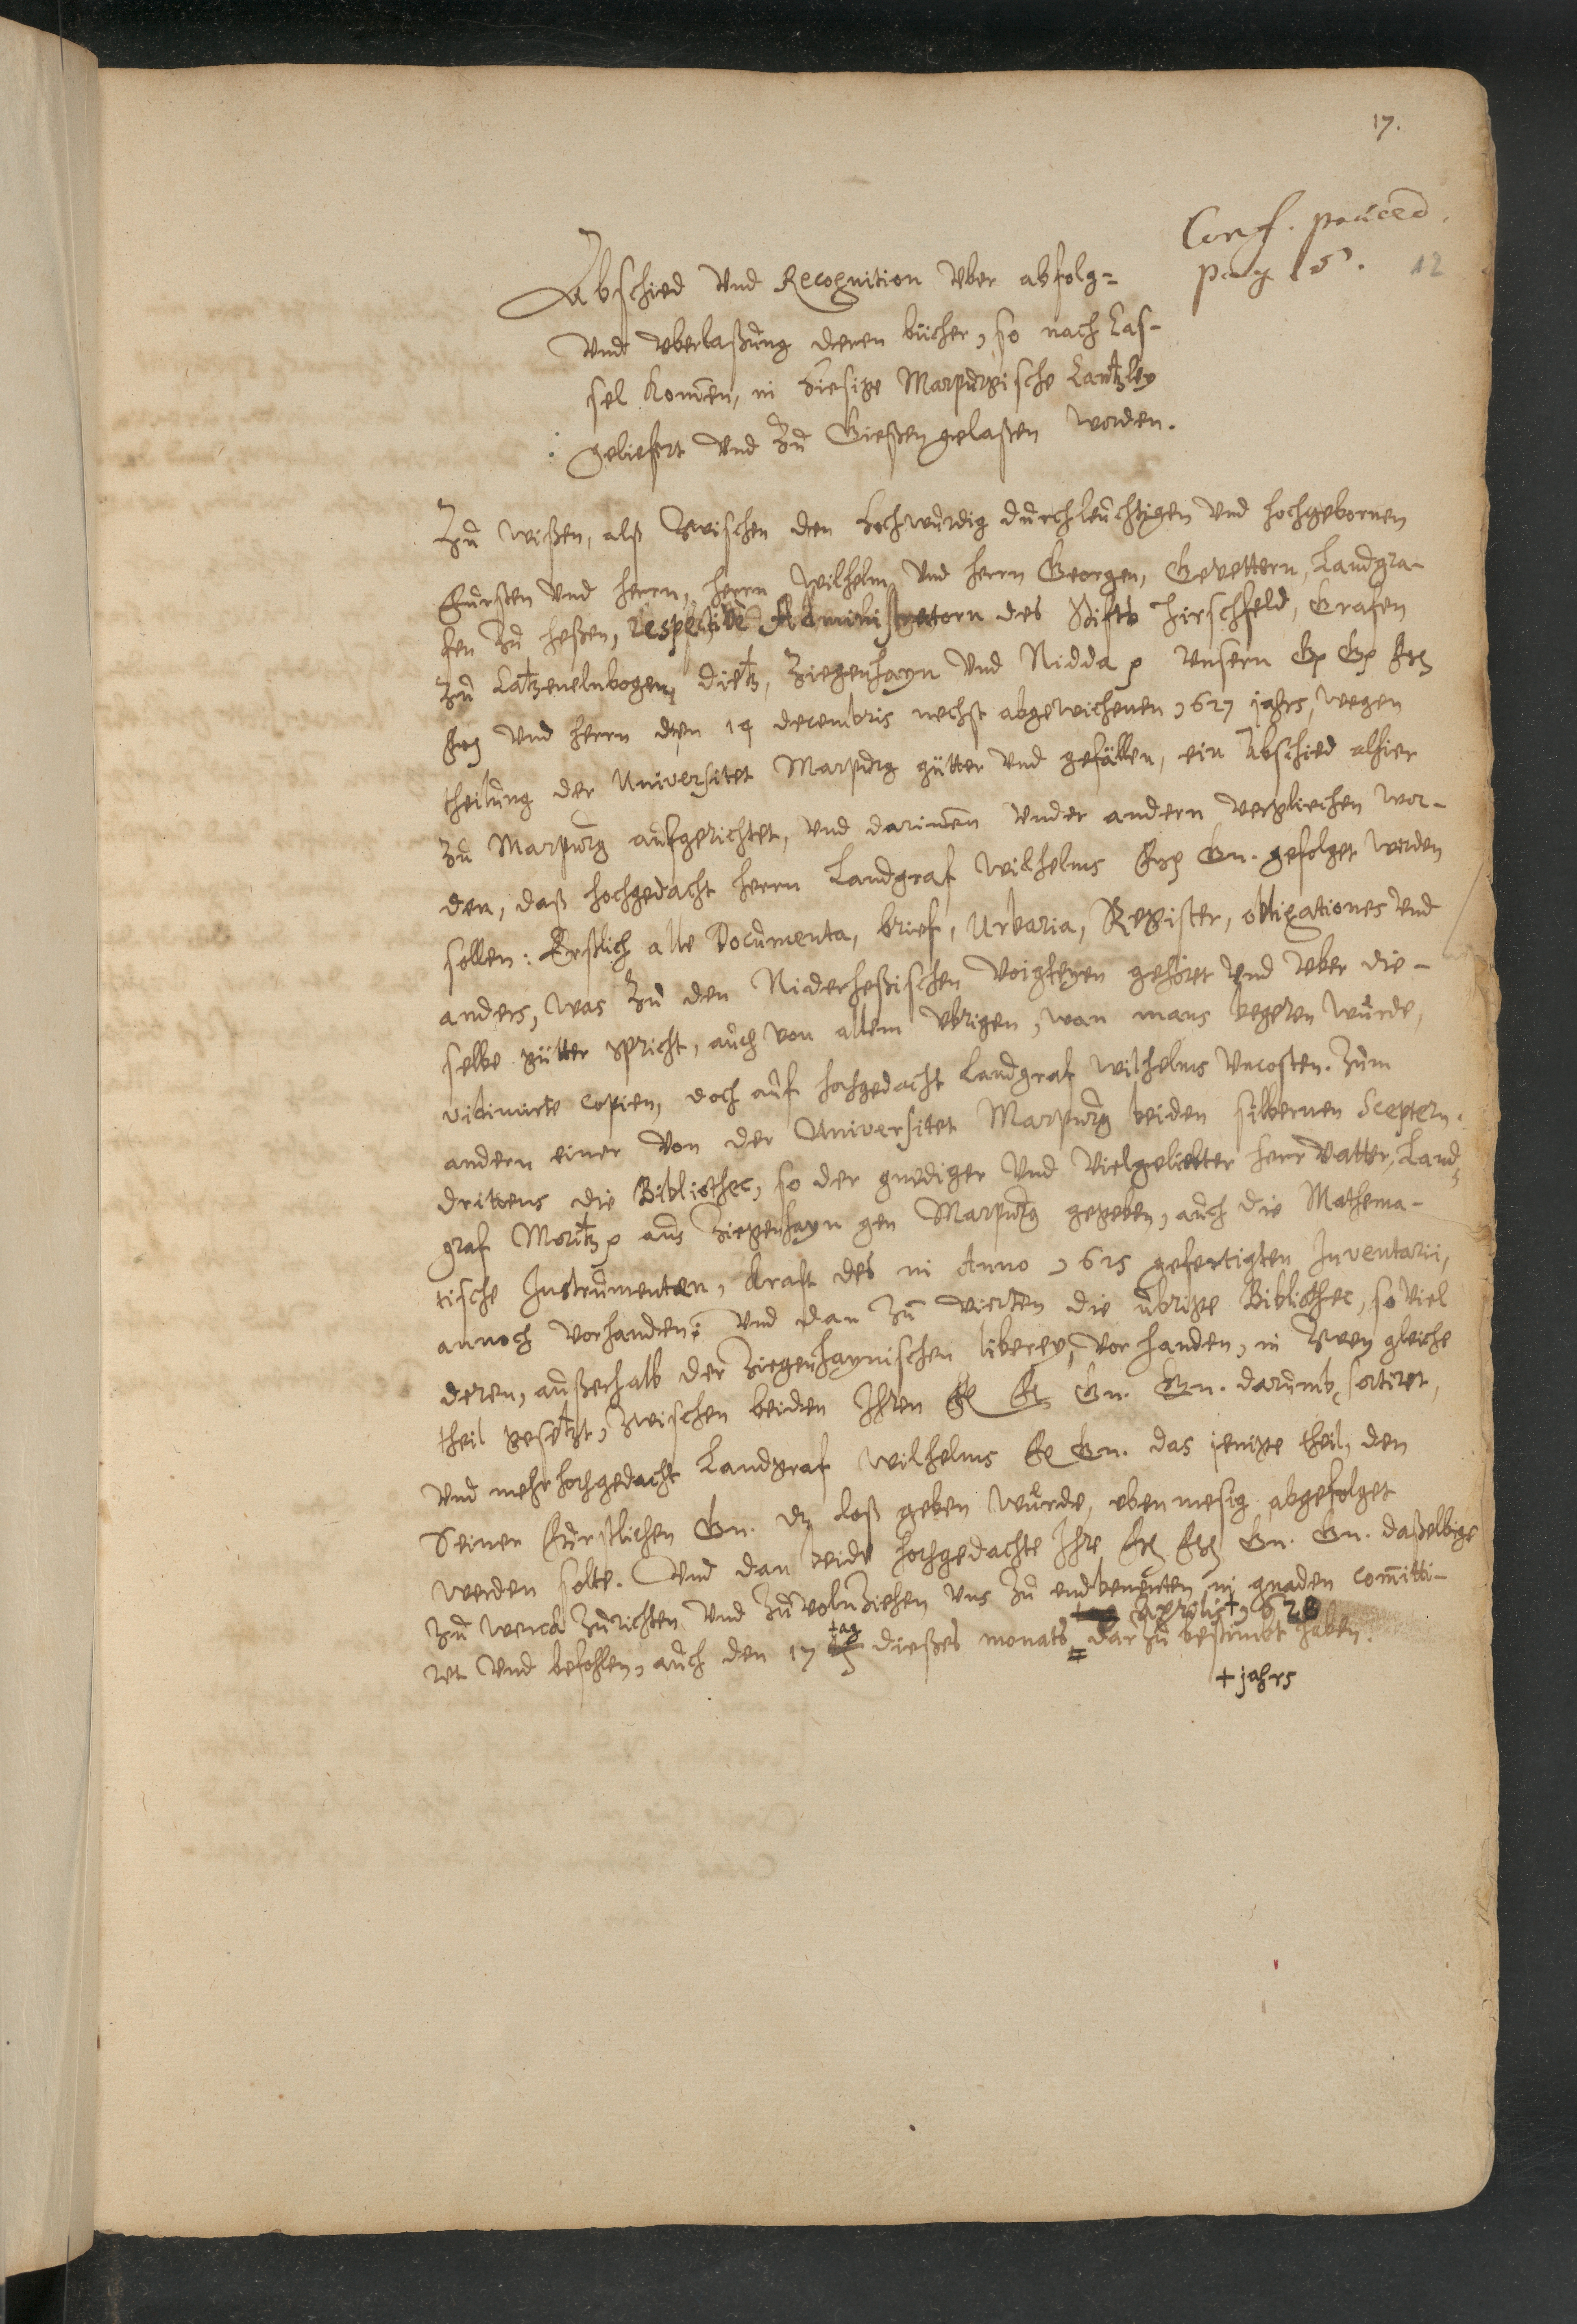 17.
Conf. praeced.
pag 15. 12
Abschied vnd Recognition vber abfolg=
vnd vberlaßung deren bücher, so nach Cas-
sel kom̄en, in hiesige Marpurgische Cantzley
geliefert vnd zu Gießen gelaßen worden.
Zu wißen, alß zwischen den hochwürdig durchleuchtigen vnd hochgebornen
Fursten vnd herrn, herrn Wilhelm vnd herrn Georgen, Gevettern, Landgra-
fen zu heßen, respective Administratorn des Stifts Hirschfeld, Grafen
zu Catzenelnbogen, dietz, Ziegenhayn vnd Nidda p vnsern Gg Gg
vnd herrn den 14 decembris nechst abgewichenen 1627 jahrs, wegen
theilung der Universitet Marpurg gütter vnd gefällen, ein Abschied alhier
zu Marpurg aufgerichtet, vnd darinnen vnder andern verglichen wor-
den, daß hochgedacht herrn Landgraf Wilhelms Gn. gefolget werden
sollen: Erstlich alle Documenta, brief, Urbaria, Register, obligationes vnd
anders, was zu den Niderheßischen Voigteyen gehöret vnd vber die-
selbe gütter spricht, auch von allem vbrigen, wan mans begeren würde,
vidimirte copien, doch auf hochgedacht Landgraf Wilhelms vncosten. Zum
andern einer von der Universitet Marpurg beiden silbernen Sceptern.
drittens die Bibliothec, so der gnediger vnd vielgeliebter herr Vatter, Land-
graf Moritz p aus Ziegenhayn gen Marpurg gegeben, auch die Mathema-
tische Instrumenten, kraft des in Anno 1625 gefertigten Inventarii,
annoch vorhanden: vnd dan zu vierten die übrige Bibliothec, so viel
deren, außerhalb der Ziegenhaynischen liberey, vorhanden, in zwey gleiche
theil gesetzt, zwischen beiden Ihren Gn. Gn. darumb sortiret,
vnd mehrhochgedacht Landgraf Wilhelms Gn. das jenige theil, den
Seiner Furstlichen Gn. dz loß geben würde, ebenmesig abgefolget
werden solte. Vnd dan beide hochgedachte Ihre Gn. Gn. daßelbige
zu werck zurichten vnd zuvolnziehen vns zu endbenenten in gnaden com̄itti-
tag Aprilis + 1628
ret vnd befohlen, auch den 17 dießes monats = darzu bestimbt haben.
+ jahrs